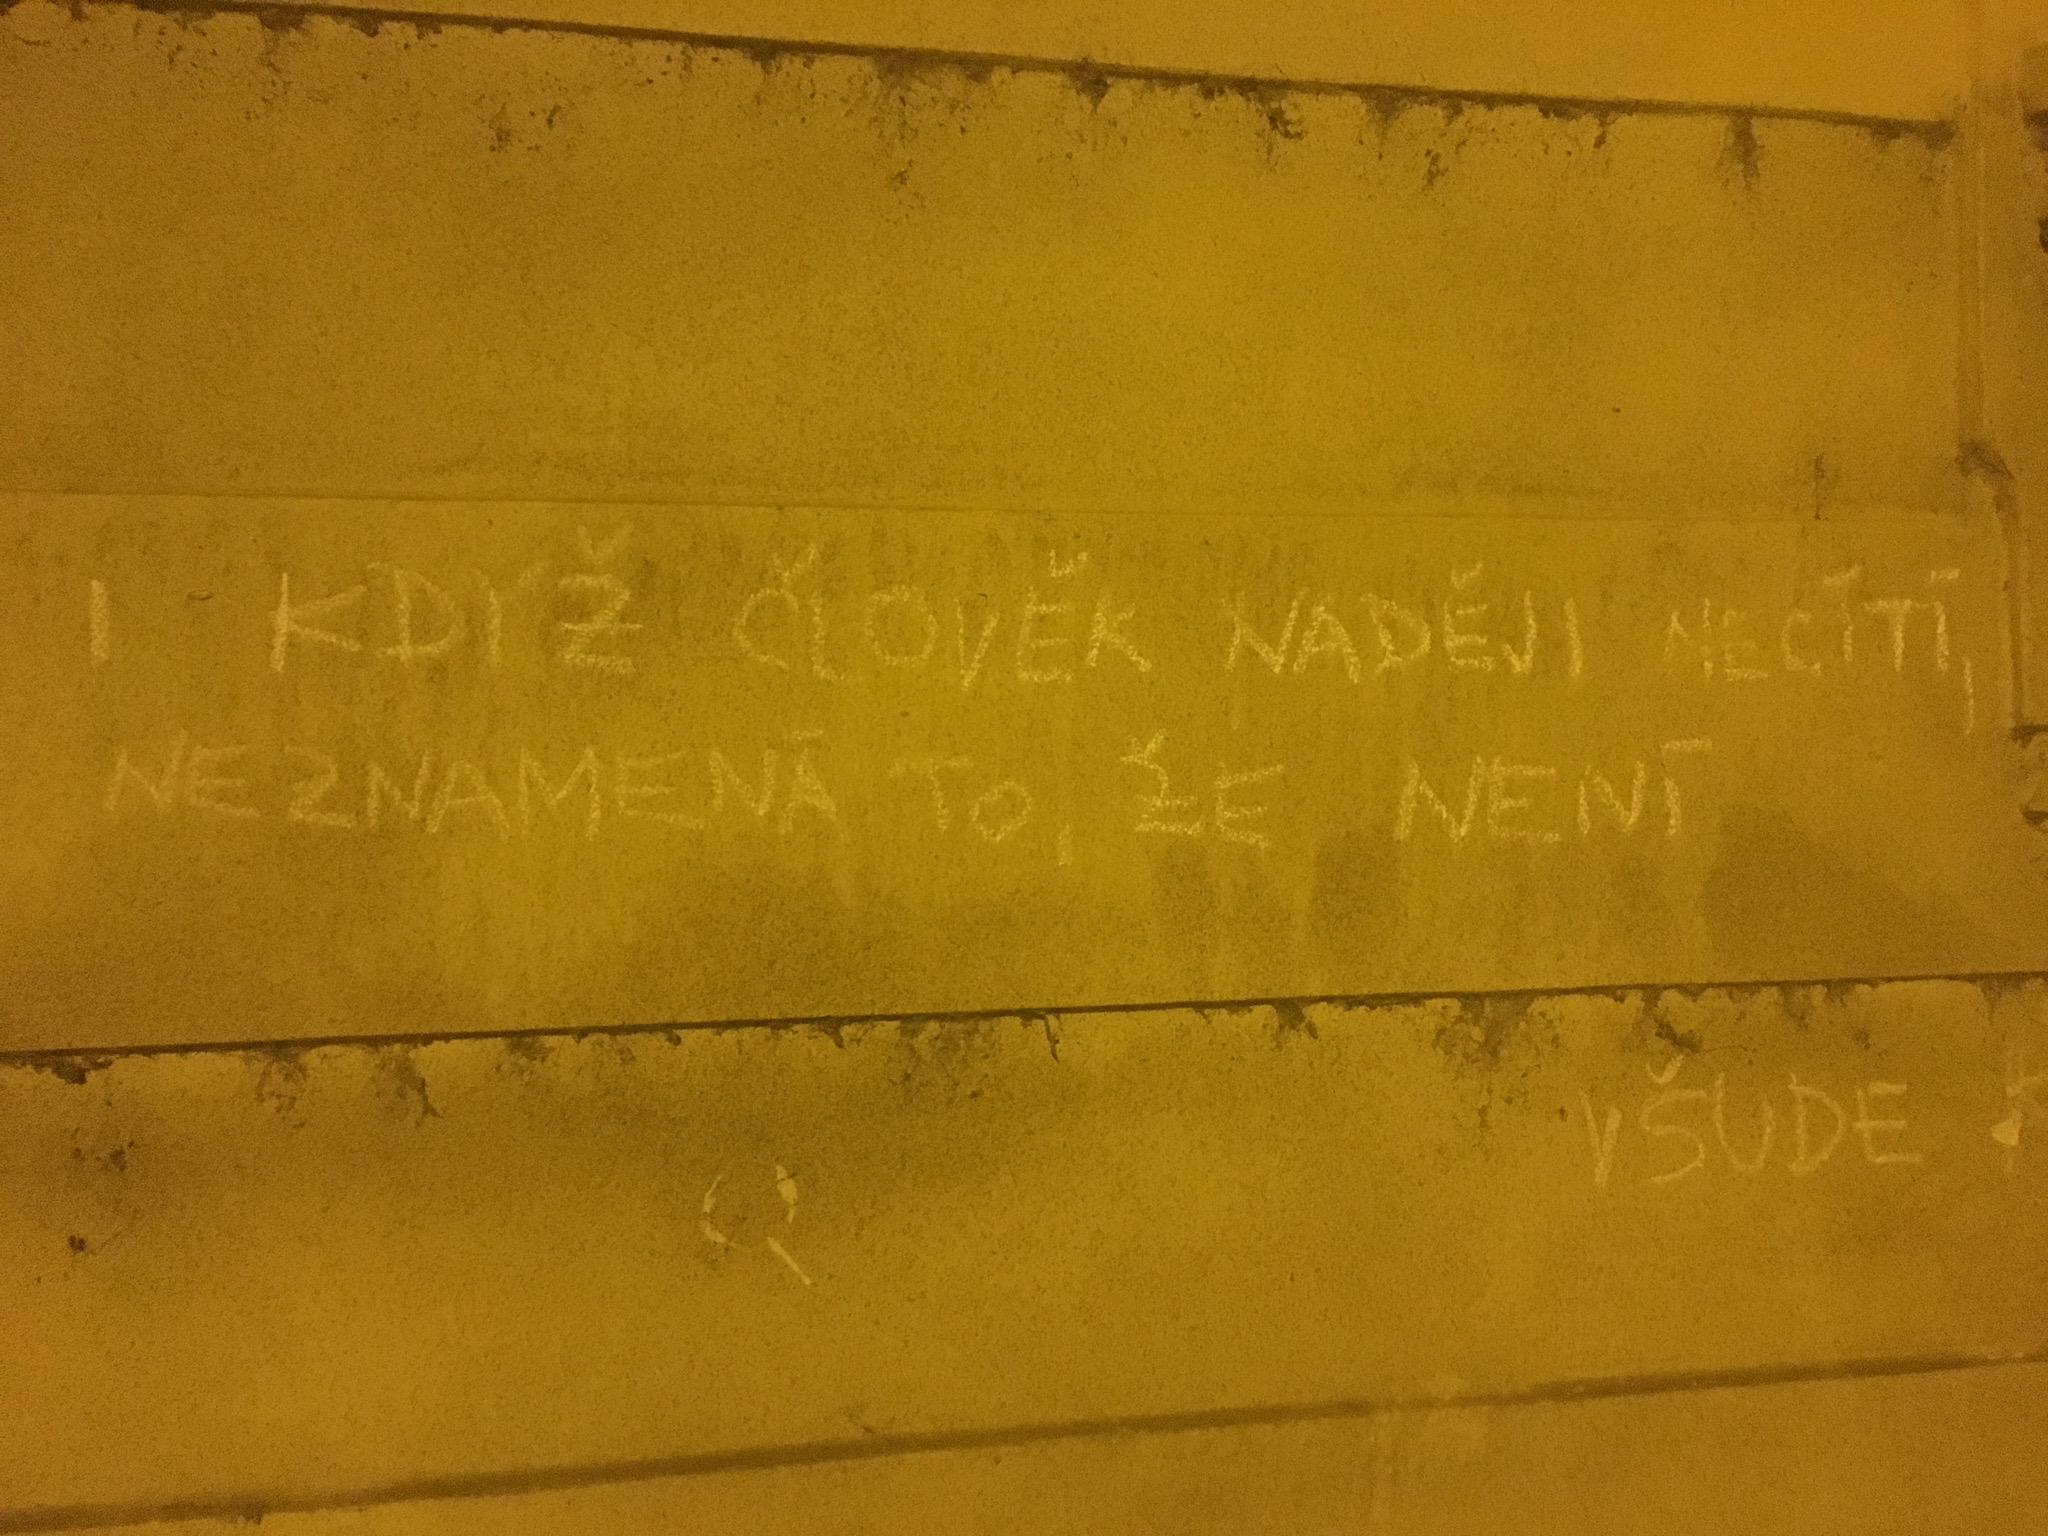 I KDYŽ ČLOVĚK NADĚJI NECÍTÍ,
NEZNAMENÁ TO, ŽE NENÍ
VŠUDE